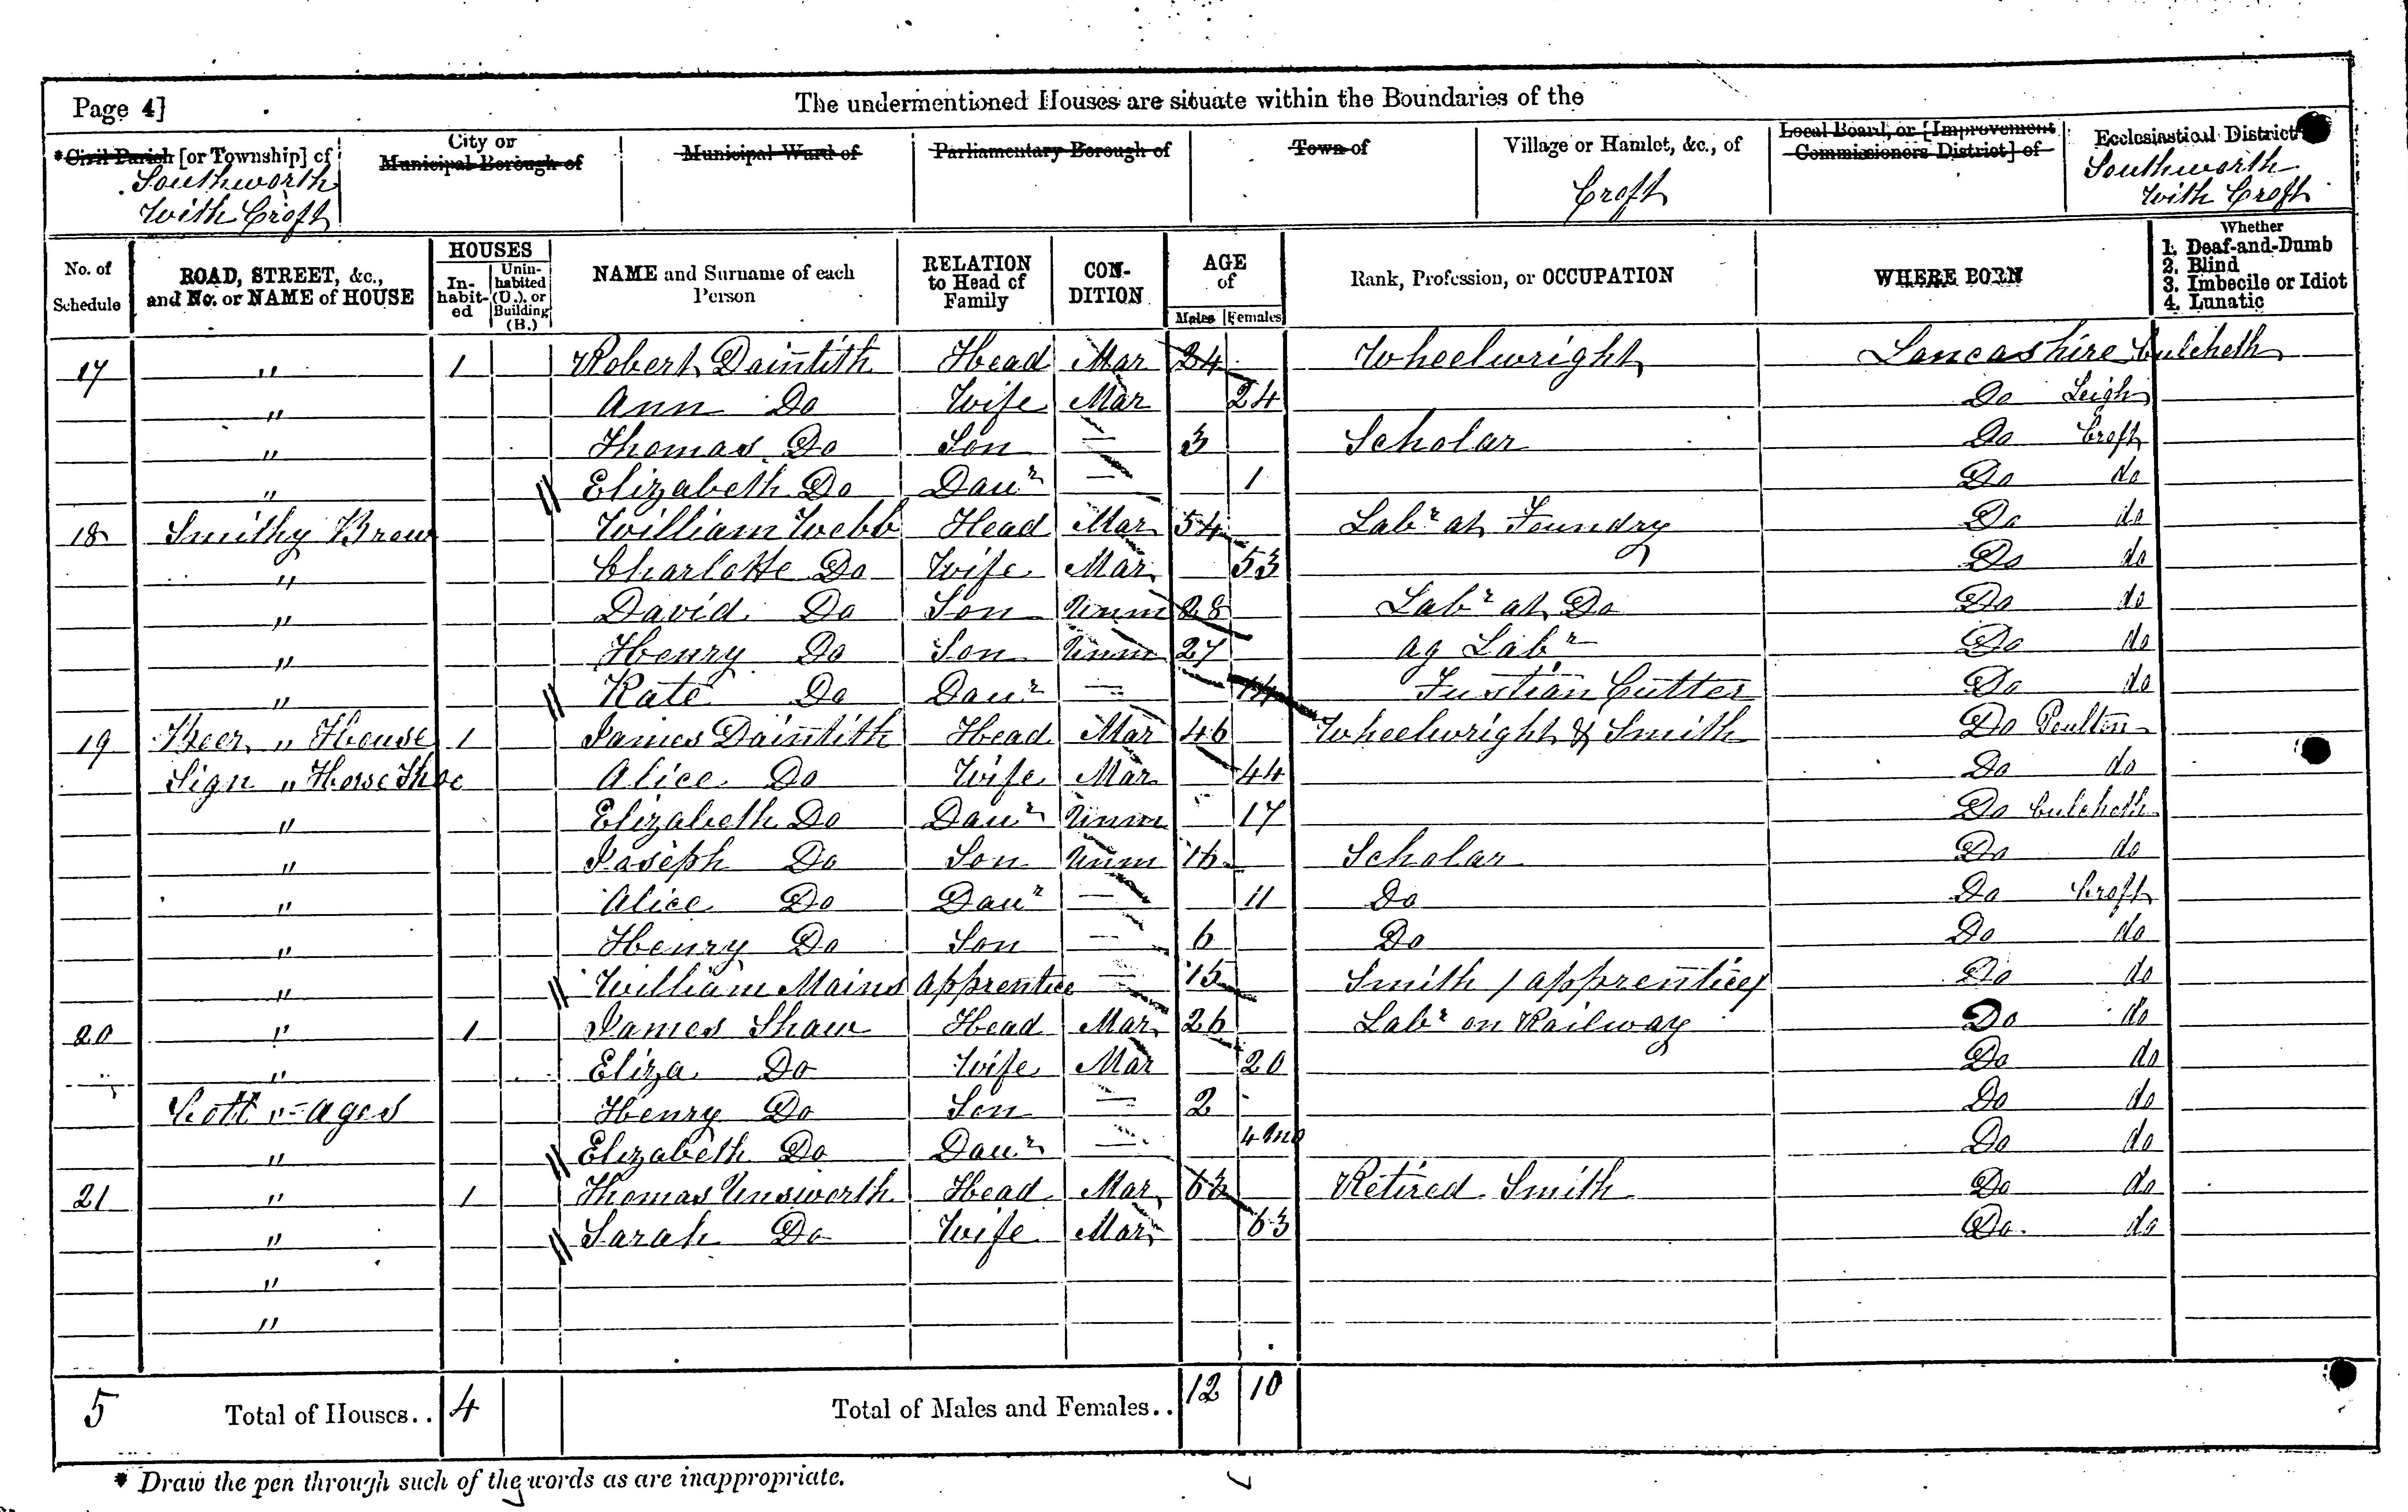 Page 4]
The undermentioned Houses are situate within the Boundaries of the
*Civil Parish [or Township] of
Southworth
With Croft
City or
Municipal Borough of
Municipal Ward of
Parliamentary Borough of
Town of
Village or Hamlet, &c., of
Croft
Local Board, or [Improvement
Commissioners District] of
Ecclesiastical District
Southworth
With Croft
No. of
Schedule
ROAD, STREET, &c.,
and No. or NAME of HOUSE
HOUSES
In-
habit-
ed
Unin-
habited
(U.), or
Building
(B.)
NAME and Surname of each
Person
RELATION
to Head of
Family
CON-
DITION
AGE
of
Males Females
Rank, Profession, or OCCUPATION
WHERE BORN
Whether
1. Deaf-and-Dumb
2. Blind
3. Imbecile or Idiot
4. Lunatic
17 " 1 Robert Daintith Head Mar 24 Wheelwright Lancashire Culcheth
" Ann Do Wife Mar 24 Do Leigh
" Thomas Do Son — 3 Scholar Do Croft
" Elizabeth Do Daur — 1 Do do
18 Smithy Brow William Webb Head Mar 54 Labr at Foundry Do do
" Charlotte Do Wife Mar 53 Do do
" David Do Son Unm 28 Labr at Do Do do
" Henry Do Son Unm 27 ag Labr Do do
" Kate Do Daur — 14 Fustian Cutter Do do
19 Beer " House 1 James Daintith Head Mar 46 Wheelwright & Smith Do Poulton
Sign " Horse Shoe Alice Do Wife Mar 44 Do do
" Elizabeth Do Daur Unm 17 Do Culcheth
" Joseph Do Son Unm 16 Scholar Do do
" Alice Do Daur — 11 Do Do Croft
" Henry Do Son — 6 Do Do do
" William Mains Apprentice — 15 Smith / apprentice / Do do
20 " 1 James Shaw Head Mar 26 Labr on Railway Do do
" Eliza Do Wife Mar 20 Do do
Cott "=ages Henry Do Son — 2 Do do
" Elizabeth Do Daur — 4 mo Do do
21 " 1 Thomas Unsworth Head Mar 63 Retired Smith Do do
" Sarah Do Wife Mar 63 Do do
"
"
5 Total of Houses.. 4 Total of Males and Females.. 12 10
* Draw the pen through such of the words as are inappropriate.